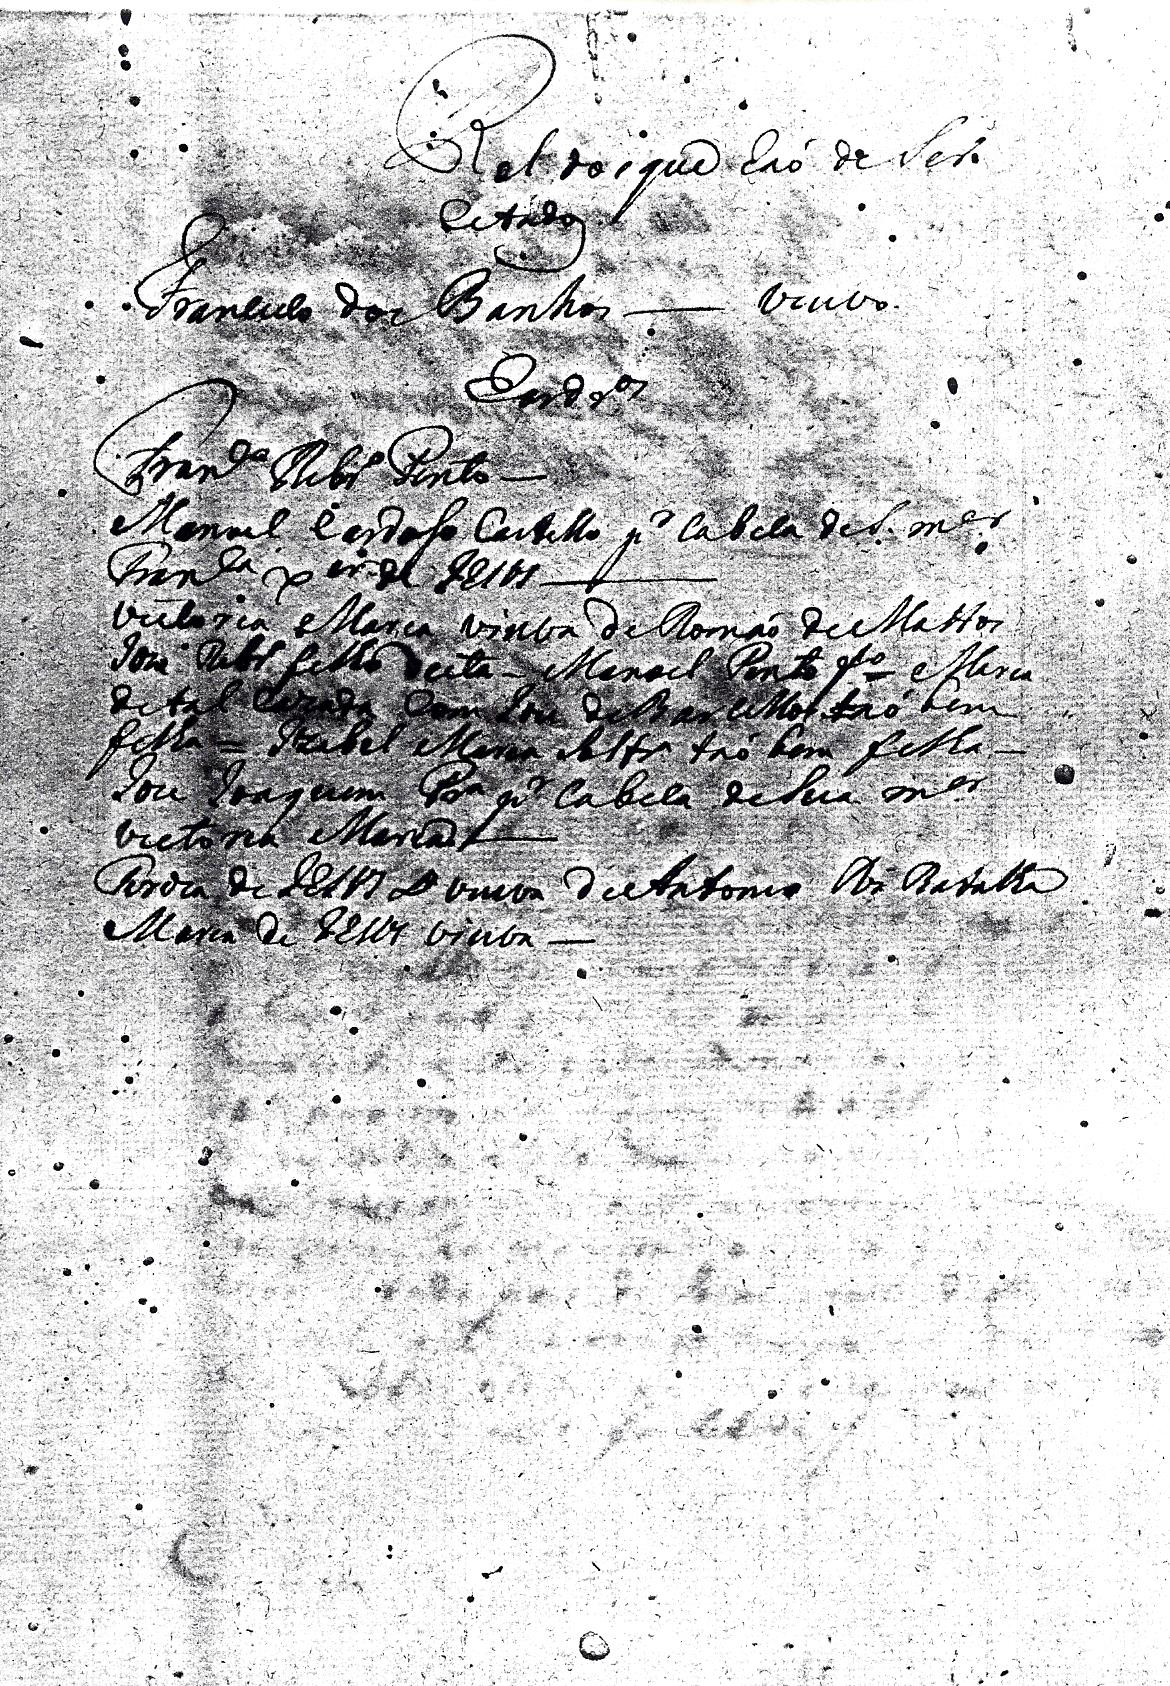 Rol dos que hão de ser
Citados
Francisco dos Banhos — viuvo
Erdros
Franca Ribro Pinto —
Manoel Cardoso Castello pr cabeca de S. mer
Franca xer de JESUS —
victoria Maria viuva de Romão de Mattos
Joze Ribr filho deita — Manoel Pinto fo Maria
de tal cazada com Joze de Barcellos tão bem
filha — Izabel Maria soltra tão bem filha —
Joze Joaquim Pra pr cabeca de sua mer
victoria Maria —
Roza de JESUS viuva de Antonio
Maria de JESUS viuva —